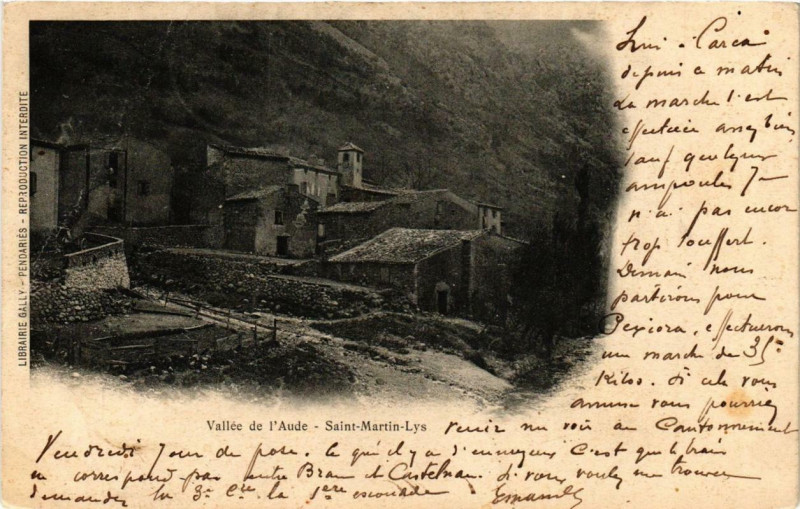 LIBRAIRIE GALLY - PENDARIÈS - REPRODUCTION INTERDITE
Vallée de l'Aude - Saint-Martin-Lys
Suis à Carca
depuis ce matin
La marche s'est
effectuée assez bien
sauf quelques
ampoules J
n'ai pas encor
trop souffert.
Demain nous
partirons pour
Pexiora, effectuerons
une marche de 35
Kilos. Si cela vous
amuse vous pourriez
venir me voir au Cantonnement
Vendredi Jour de pose. Ce qu'il y a d'ennuyeux C'est que le train
ne correspond pas entre Bram et Castelnau. Si vous voulez me trouver
demandez la 3e Cie la 1ere escouade